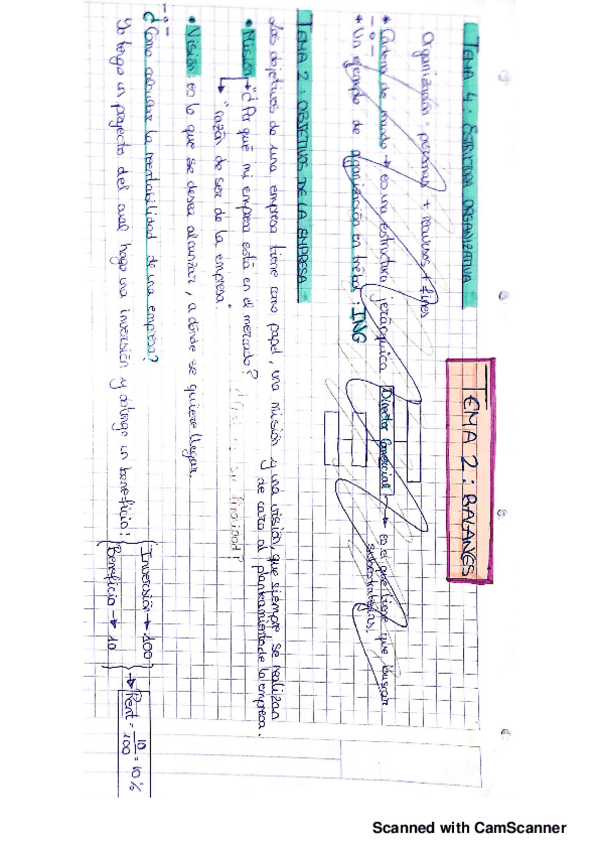 TEMA 2: BALANCES
TEMA 4: ESTRUCTURA ORGANIZATIVA
Organización: personas + recursos + fines
* Cadena de mando → es una estructura jerárquica
Director Comercial → es el que tiene que buscar
* Un ejemplo de organización en trébol: ING
TEMA 2: OBJETIVOS DE LA EMPRESA
Los objetivos de una empresa tiene como papel, una misión y una visión, que siempre se realizan
de cara al planteamiento de la empresa.
• Misión → ¿Por qué mi empresa está en el mercado?
↳ "razón de ser de la empresa."
• Visión: es lo que se desea alcanzar, a dónde se quiere llegar.
¿Cómo calcular la rentabilidad de una empresa?
Yo tengo un proyecto del cual hago una inversión y obtengo un beneficio:
Inversión → 100
Beneficio → 10
→ Rent = 10/100 = 10%
Scanned with CamScanner